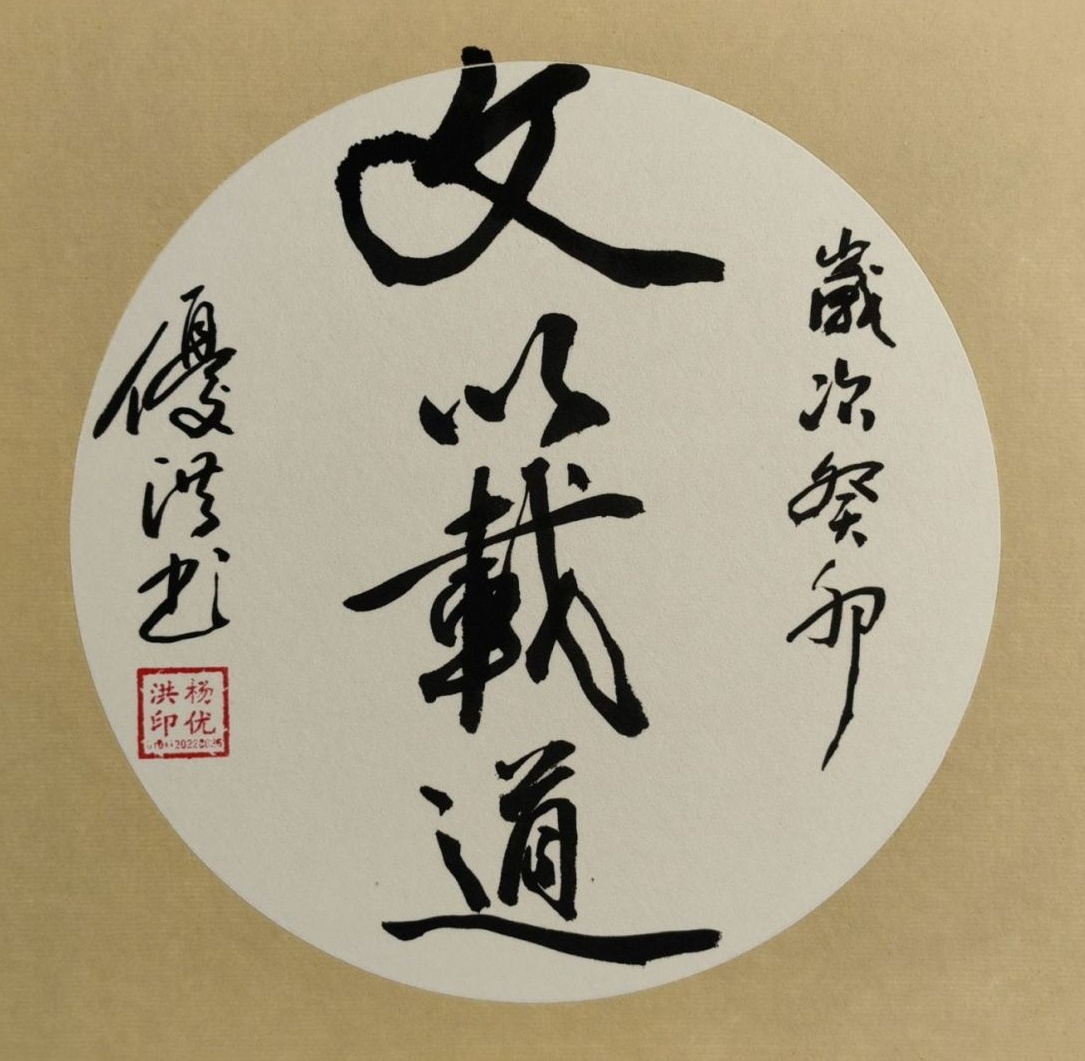 歲次癸卯
文以載道
優洪书
杨优
洪印